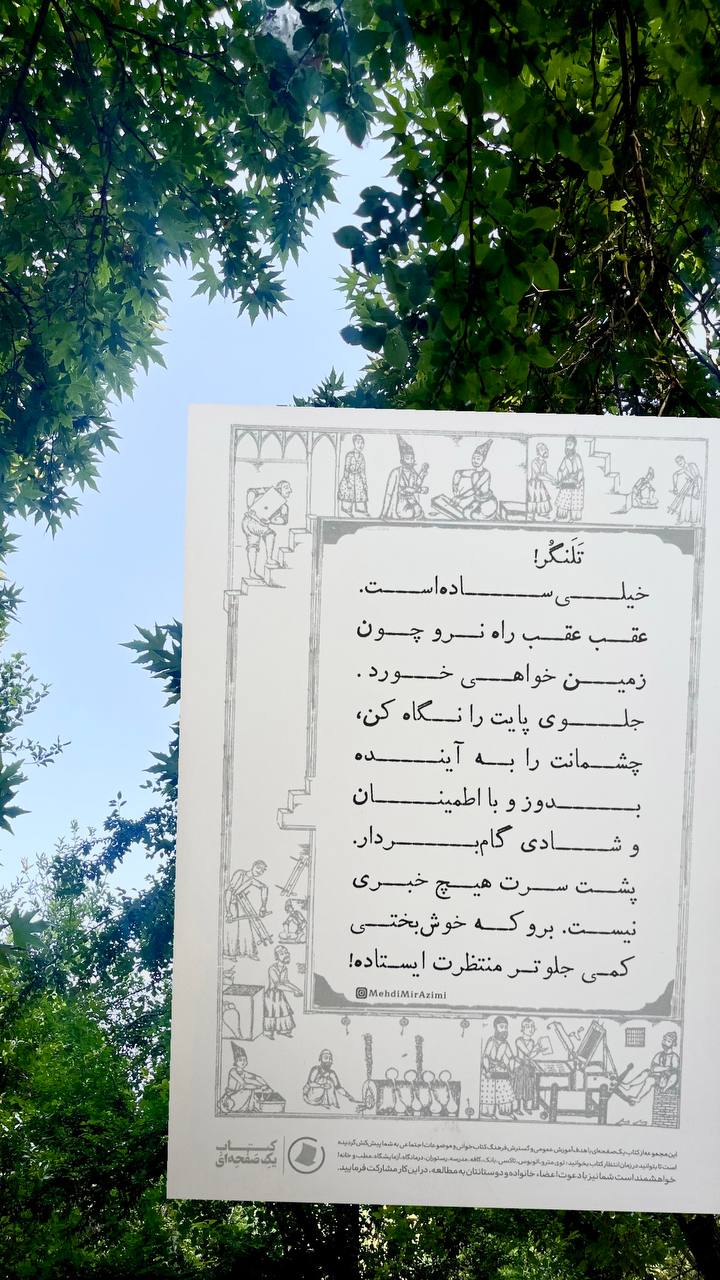 تَلَنگُر!
خیلی ساده‌است.
عقب عقب راه نرو چون
زمین خواهی خورد .
جلوی پایت را نگاه کن،
چشمانت را به آینده
بدوز و با اطمینان
و شادی گام‌بردار.
پشت سرت هیچ خبری
نیست. برو که خوش‌بختی
کمی جلوتر منتظرت ایستاده!
MehdiMirAzimi
این مجموعه از کتاب یک صفحه‌ای با هدف آموزش عمومی و گسترش فرهنگ کتاب‌خوانی و موضوعات اجتماعی به شما پیش‌کش گردیده
است تا بتوانید در زمان انتظار کتاب بخوانید: توی مترو، اتوبوس، تاکسی، بانک، کافه، مدرسه، رستوران، درمانگاه، آزمایشگاه، مطب و خانه!
خواهشمند است شما نیز با دعوت اعضاء خانواده و دوستانتان به مطالعه، در این کار مشارکت فرمایید.
کتاب
یک صَفحِه‌ای